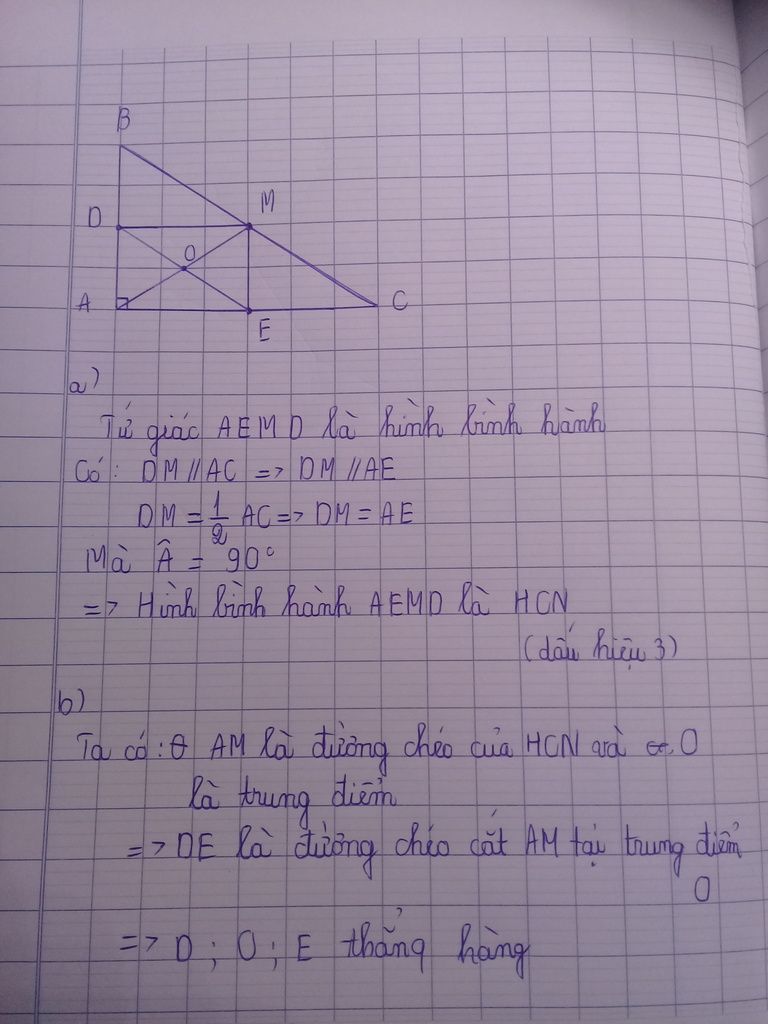 B
D
M
O
A
C
E
a)
Tứ giác AEMD là hình bình hành
Có: DM // AC => DM // AE
DM = 1/2 AC => DM = AE
Mà Â = 90°
=> Hình bình hành AEMD là HCN
(dấu hiệu 3)
b)
Ta có: AM là đường chéo của HCN và O
là trung điểm
=> DE là đường chéo cắt AM tại trung điểm
O
=> D ; O ; E thẳng hàng